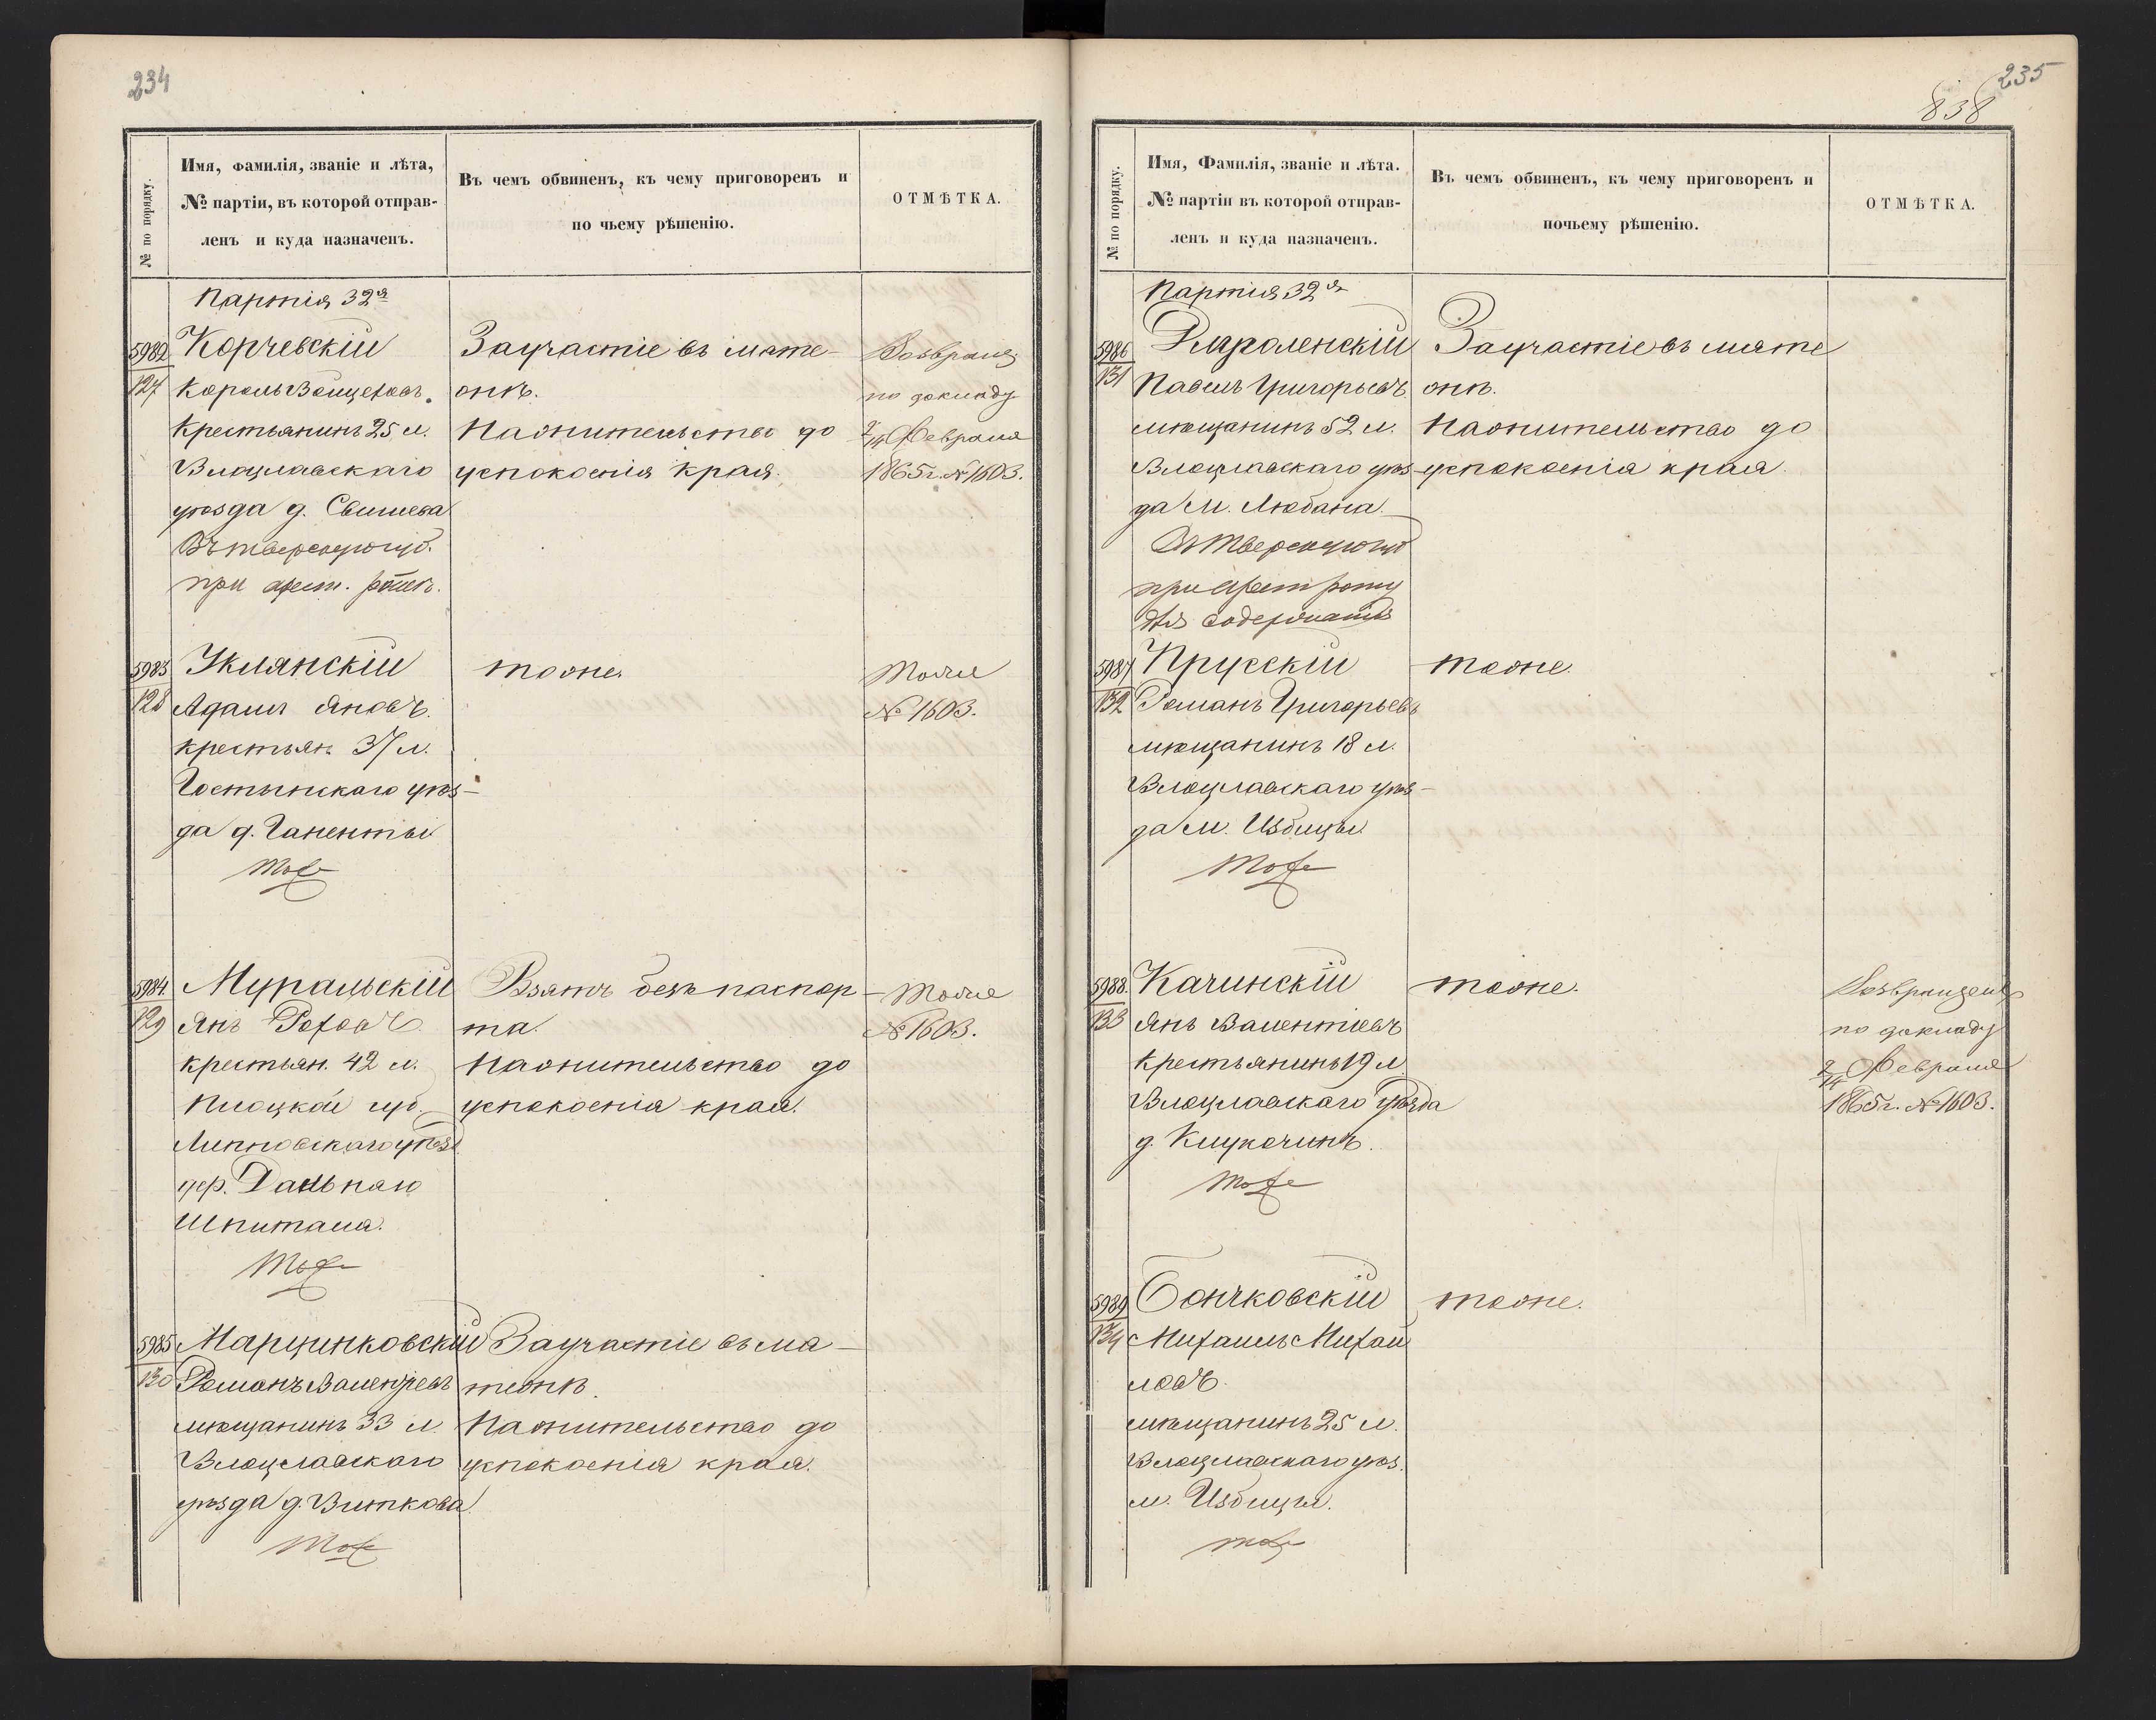 234
№ по порядку.
Имя, Фамилія, званіе и лѣта,
№ партіи, въ которой отправ-
ленъ и куда назначенъ.
Въ чемъ обвиненъ, къ чему приговоренъ и
по чьему рѣшенію.
ОТМѢТКА.
Партія 32я
5982
127
Корчевскій
Король Войцехов.
Крестьянинъ 25 л.
Влоцлавскаго
уѣзда д.
Въ Тверскую губ.
при арест. ротѣ.
За участіе въ мяте-
жѣ.
На жительство до
успокоенія края.
Возвращ
по докладу
2/14 Февраля
1865г. № 1603.
5983
128
Адамъ Яновъ.
крестьян. 37 л.
Гостынскаго уѣз-
да д.
Тоже
тоже.
Тоже
№ 1603.
5984
129
Муральскій
Янъ Рохов.
крестьян. 42 л.
Плоцкой губ.
Липновскаго уѣзд
дер.
Шпиталя.
Тоже
Взятъ безъ паспор-
та.
На жительство до
успокоенія края.
Тоже
№ 1603.
5985
130
Марцинковскій
Романъ Валентьевъ
мѣщанинъ 33 л.
Влоцлавскаго
уѣзда д. Виткова
Тоже
За участіе въ мя-
тежѣ.
На жительство до
успокоенія края.
235
838
№ по порядку.
Имя, Фамилія, званіе и лѣта.
№ партіи въ которой отправ-
ленъ и куда назначенъ.
Въ чемъ обвиненъ, къ чему приговоренъ и
почьему рѣшенію.
ОТМѢТКА.
Партія 32я
5986
131
Павелъ Григорьевъ.
мѣщанинъ 52 л.
Влоцлавскаго уѣз-
да м. Любана.
Въ Тверскую губ
при Арест роту
для содержанія
За участіе въ мяте
жѣ.
На жительство до
успокоенія края.
5987
132
Прусскій
Романъ Григорьевъ
мѣщанинъ 18 л.
Влоцлавскаго уѣз-
да м. Избицы.
Тоже
тоже.
5988.
133
Качинскій
Янъ Валентіевъ
Крестьянинъ 19 л.
Влоцлавскаго Уѣзда
д.
Тоже
тоже.
Возвращенъ
по докладу
2/14 Февраля
1865г. № 1603.
5989
134
Бончковскій
Михаилъ Михай
ловъ.
мѣщанинъ 25 л.
Влоцлавскаго уѣз.
м. Избицы.
тоже
тоже.